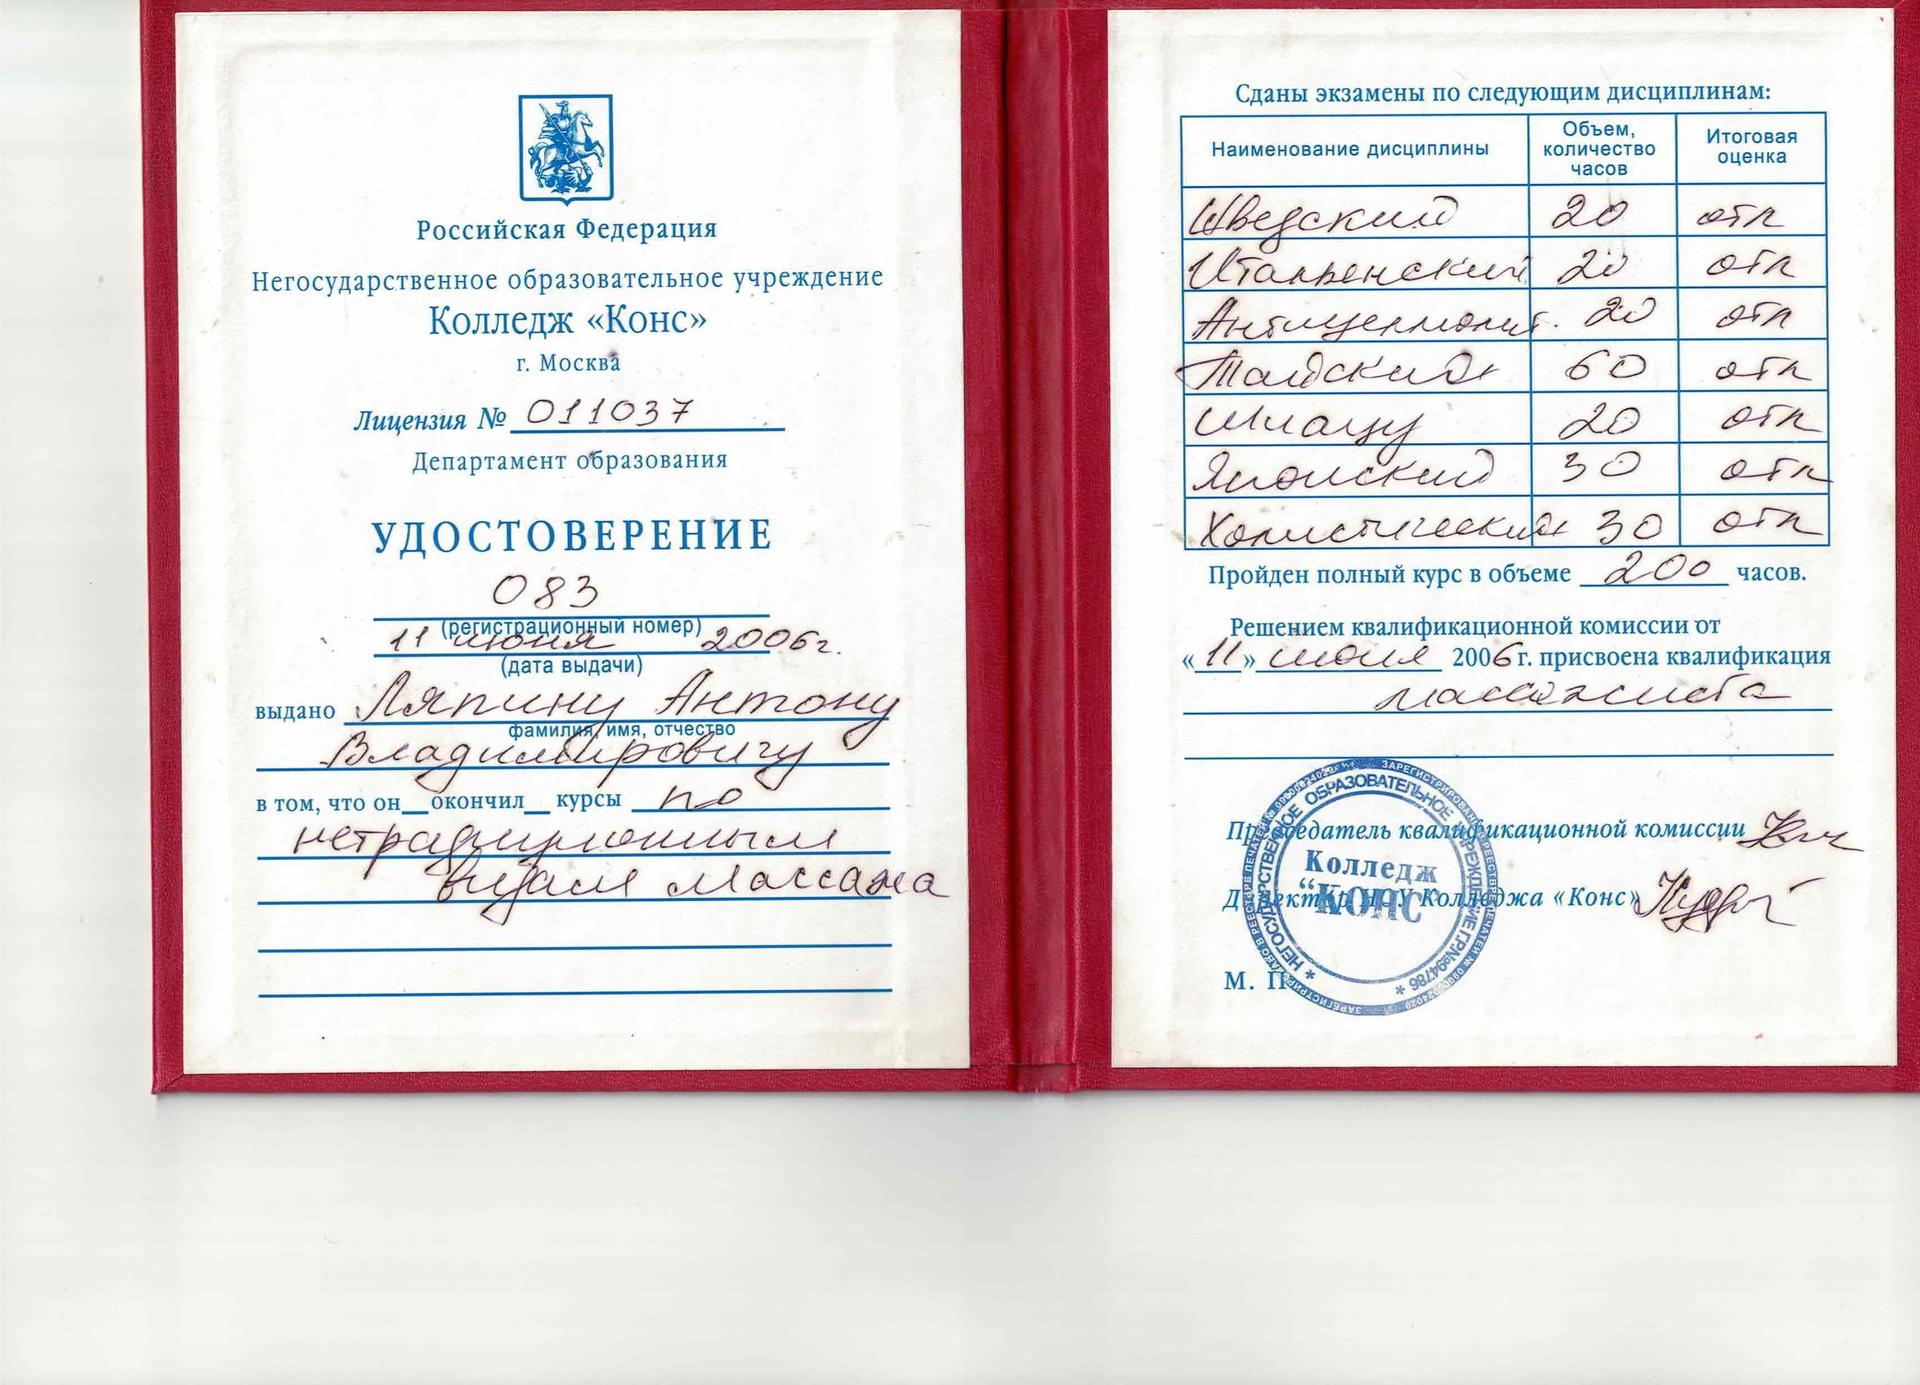 Российская Федерация
Негосударственное образовательное учреждение
Колледж «Конс»
г. Москва
Лицензия № 011037
Департамент образования
УДОСТОВЕРЕНИЕ
083
(регистрационный номер)
11 июня 2006г.
(дата выдачи)
выдано Ляпину Антону
фамилия, имя, отчество
Владимировичу
в том, что он окончил курсы по
нетрадиционным
видам массажа
Сданы экзамены по следующим дисциплинам:
Наименование дисциплины Объем, количество часов Итоговая оценка
Шведский 20 отл
Итальянский 20 отл
Антицеллюлит. 20 отл
Тайский 60 отл
Шиацу 20 отл
Японский 30 отл
Холистический 30 отл
Пройден полный курс в объеме 200 часов.
Решением квалификационной комиссии от
«11» июня 2006 г. присвоена квалификация
массажиста
Председатель квалификационной комиссии
Директор НОУ Колледжа «Конс»
М. П.
НЕГОСУДАРСТВЕННОЕ ОБРАЗОВАТЕЛЬНОЕ УЧРЕЖДЕНИЕ
Колледж
"КОНС"